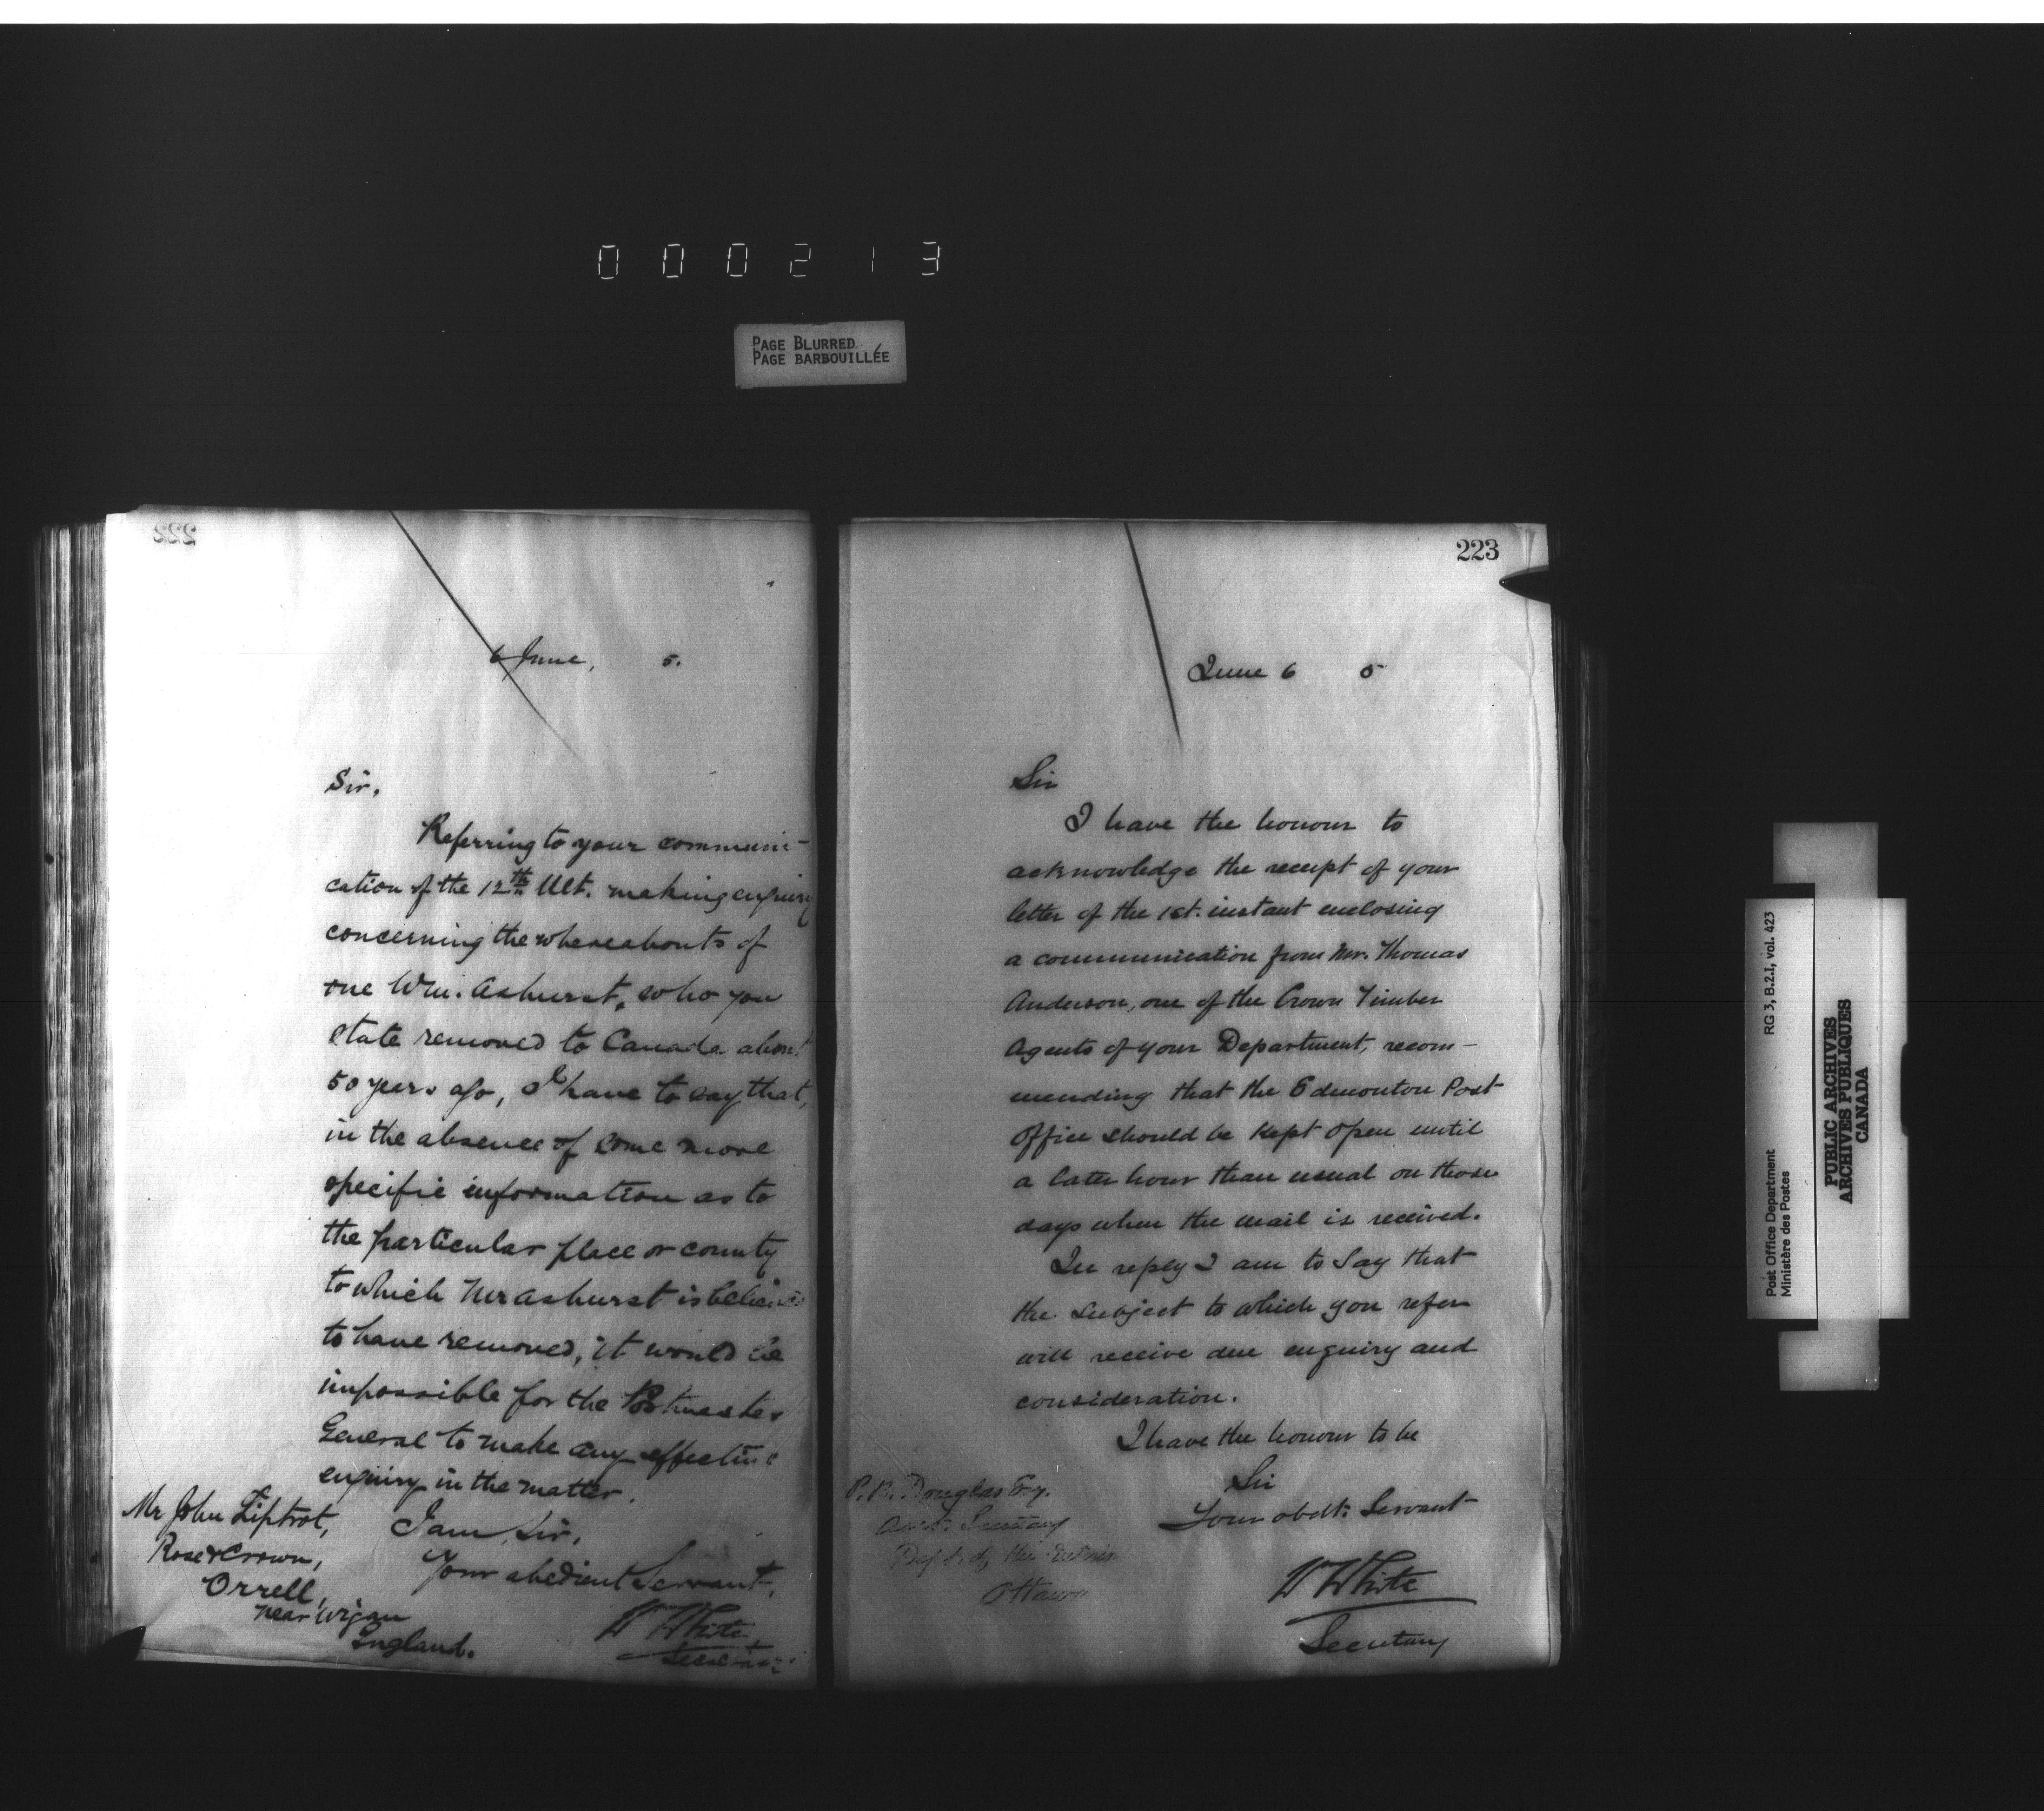 000213
PAGE BLURRED
PAGE BARBOUILLÉE
222
6 June, 5.
Sir,
Referring to your communi-
cation of the 12th Ult. making enquiry
concerning the whereabouts of
one Wm. Ashurst, who you
state removed to Canada about
50 years ago, I have to say that,
in the absence of some more
specific information as to
the particular place or county
to which Mr Ashurst is believed
to have removed, it would be
impossible for the Postmaster
General to make any effective
enquiry in the matter.
I am, Sir,
Your obedient Servant,
W White
Secretary
Mr John Liptrot,
Rose & Crown,
Orrell,
near Wigan
England.
223
June 6 5
Sir
I have the honour to
acknowledge the receipt of your
letter of the 1st. instant enclosing
a communication from Mr. Thomas
Anderson, one of the Crown Timber
Agents of your Department, recom-
mending that the Edmonton Post
Office should be kept open until
a later hour than usual on those
days when the mail is received.
In reply I am to say that
the subject to which you refer
will receive due enquiry and
consideration.
I have the honour to be
Sir
Your obdt: Servant
W White
Secretary
Douglas Esq.
Asst. Secretary
Dept. of the Interior
Ottawa
Post Office Department RG 3, B.2.I, vol. 423
Ministère des Postes
PUBLIC ARCHIVES
ARCHIVES PUBLIQUES
CANADA